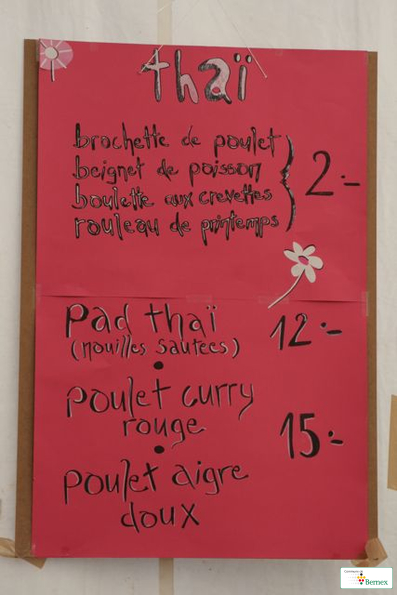 thaï
brochette de poulet
beignet de poisson
boulette aux crevettes
rouleau de printemps
2.-
Pad thaï
(nouilles sautées)
12.-
poulet curry
rouge
15.-
poulet aigre
doux
Bernex